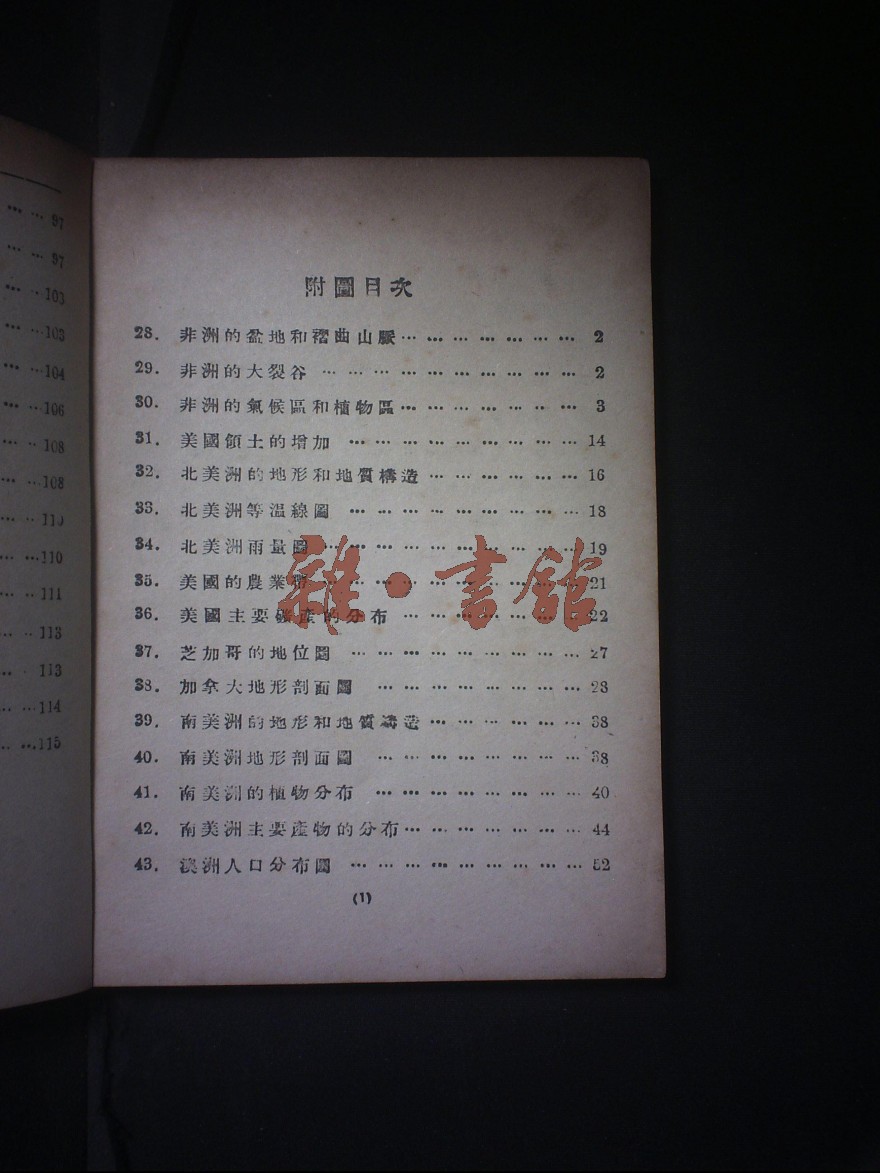 … … 97
… … 97
… …103
… …103
… …104
… …106
… …108
… …108
… …110
… …110
… …111
… …113
… …113
… …114
… …115
附圖目次
28. 非洲的盆地和褶曲山脈… … … … … … … 2
29. 非洲的大裂谷 … … … … … … … … … … 2
30. 非洲的氣候區和植物區… … … … … … … 3
31. 美國領土的增加 … … … … … … … … … 14
32. 北美洲的地形和地質構造… … … … … … 16
33. 北美洲等溫線圖 … … … … … … … … … 18
34. 北美洲雨量圖 … … … … … … … … … 19
35. 美國的農業帶 … … … … … … … … … 21
36. 美國主要礦產的分布 … … … … … … … 22
37. 芝加哥的地位圖 … … … … … … … … … 27
38. 加拿大地形剖面圖 … … … … … … … … 28
39. 南美洲的地形和地質構造… … … … … … 38
40. 南美洲地形剖面圖 … … … … … … … … 38
41. 南美洲的植物分布 … … … … … … … … 40
42. 南美洲主要產物的分布… … … … … … … 44
43. 澳洲人口分布圖 … … … … … … … … … 52
(1)
雜·書館